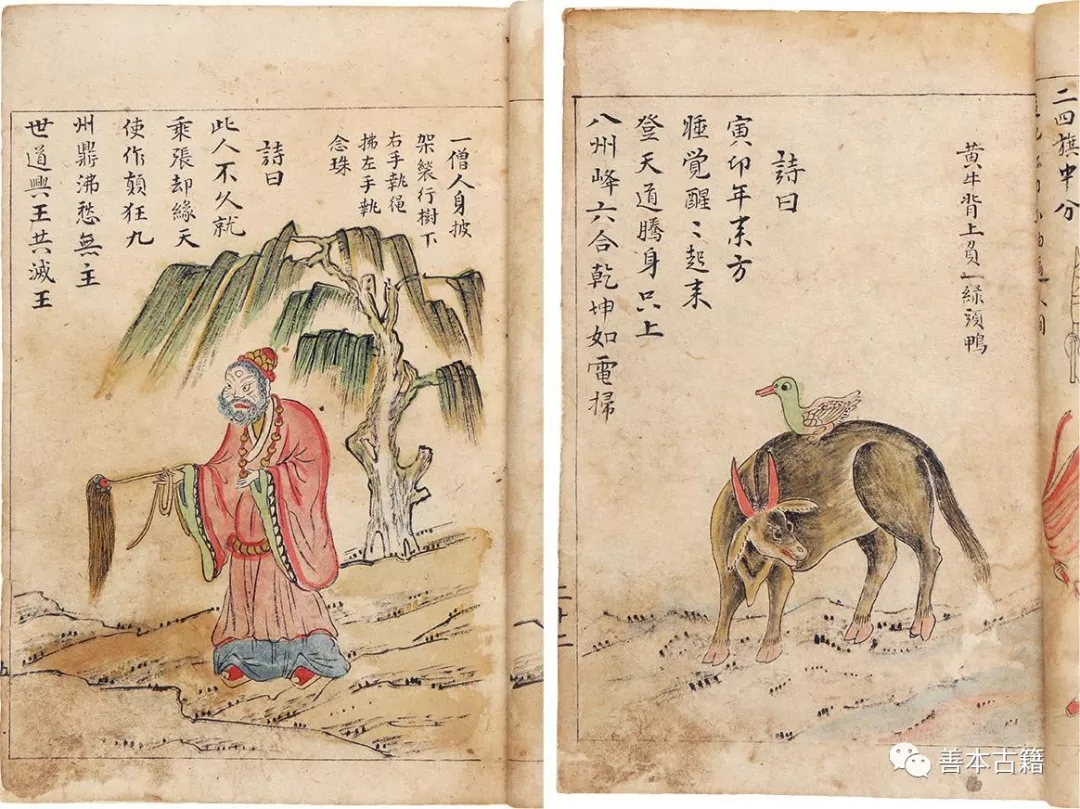 一僧人身披
架裟行樹下
右手執繩
揣左手執
念珠
詩曰
此人不久就
乘張却緣天
使作顛狂九
州鼎沸愁無主
世道興王共滅王
二四旗中分
黄牛背上負一緑頭鴨
詩曰
寅卯年来方
睡覚醒〻起来
登天道騰身只上
八州峰六合乾坤如電掃
二十二
九
善本古籍